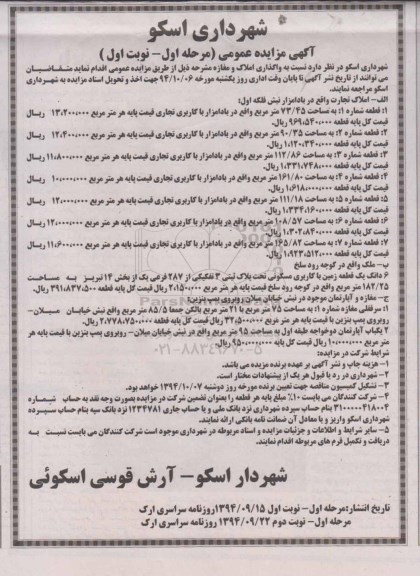 شهرداری اسکو
آگهی مزایده عمومی (مرحله اول- نوبت اول )
شهرداری اسکو در نظر دارد نسبت به واگذاری املاک و مغازه مشرحه ذیل از طریق مزایده عمومی اقدام نماید متقاضیان
می توانند از تاریخ نشر آگهی تا پایان وقت اداری روز یکشنبه مورخه ۹۴/۱۰/۰۶ جهت اخذ و تحویل اسناد مزایده به شهرداری
اسکو مراجعه نمایند.
الف- املاک تجارت واقع در بادامزار نبش فلکه اول:
۱: قطعه شماره ۱: به مساحت ۷۳/۴۵ متر مربع واقع در بادامزار با کاربری تجاری قیمت پایه هر متر مربع ۱۳،۲۰۰،۰۰۰ ریال
قیمت کل پایه قطعه ۹۶۹،۵۴۰،۰۰۰ ریال.
۲: قطعه شماره ۲: به مساحت ۹۰/۳۵ متر مربع واقع در بادامزار با کاربری تجاری قیمت پایه هر متر مربع ۱۲،۴۰۰،۰۰۰ ریال
قیمت کل پایه قطعه ۱،۱۲۰،۳۴۰،۰۰۰ ریال.
۳: قطعه شماره ۳: به مساحت ۱۱۲/۸۶ متر مربع واقع در بادامزار با کاربری تجاری قیمت پایه هر متر مربع ۱۱،۸۰۰،۰۰۰ ریال
قیمت کل پایه قطعه ۱،۳۳۱،۷۴۸،۰۰۰ ریال.
۴: قطعه شماره ۴: به مساحت ۱۶۱/۸۰ متر مربع واقع در بادامزار با کاربری تجاری قیمت پایه هر متر مربع ۱۰،۰۰۰،۰۰۰ ریال
قیمت کل پایه قطعه ۱،۶۱۸،۰۰۰،۰۰۰ ریال.
۵: قطعه شماره ۵: به مساحت ۱۱۱/۱۸ متر مربع واقع در بادامزار با کاربری تجاری قیمت پایه هر متر مربع ۱۲،۰۰۰،۰۰۰ ریال
قیمت کل پایه قطعه ۱،۳۳۴،۱۶۰،۰۰۰ ریال.
۶: قطعه شماره ۶: به مساحت ۱۰۸/۵۷ متر مربع واقع در بادامزار با کاربری تجاری قیمت پایه هر متر مربع ۱۲،۰۰۰،۰۰۰ ریال
قیمت کل پایه قطعه ۱،۳۰۲،۸۴۰،۰۰۰ ریال.
۷: قطعه شماره ۷: به مساحت ۱۶۵/۸۲ متر مربع واقع در بادامزار با کاربری تجاری قیمت پایه هر متر مربع ۱۱،۶۰۰،۰۰۰ ریال
قیمت کل پایه قطعه ۱،۹۲۳،۵۱۲،۰۰۰ ریال.
ب- ملک واقع در کوچه رود سلخ
۶ دانک یک قطعه زمین با کاربری مسکونی تحت پلاک ثبتی ۳ تفکیکی از ۲۸۷ فرعی یک از بخش ۱۴ تبریز به مساحت
۱۸۲/۲۵ متر مربع واقع در کوچه رود سلخ قیمت پایه هر متر مربع ۲،۱۵۰،۰۰۰ ریال قیمت کل پایه قطعه ۳۹۱،۸۳۷،۵۰۰ ریال.
ج- مغازه و آپارتمان موجود در نبش خیابان میلان روبروی پمپ بنزین:
۱: سرقفلی مغازه شماره ۱: به مساحت ۷۵ متر مربع با ۲۱ متر مربع بالکن جمعا ۸۵/۵ متر مربع واقع نبش خیابان میلان-
روبروی پمپ بنزین با قیمت پایه هر متر مربع ۳۲،۵۰۰،۰۰۰ ریال قیمت کل پایه قطعه ۲،۷۷۸،۷۵۰،۰۰۰ ریال.
۲ یکباب آپارتمان دوخوابه طبقه اول به مساحت ۹۵ متر مربع واقع در نبش خیابان میلان- روبروی پمپ بنزین با قیمت پایه هر
متر مربع ۱۰،۰۰۰،۰۰۰ ریال قیمت کل پایه ۹۵۰،۰۰۰،۰۰۰ ریال.
شرایط شرکت در مزایده:
۱- هزینه چاپ و نشر آگهی بر عهده برنده مزیده می باشد.
۲- شهرداری در رد یا قبول هر یک از پیشنهادات مختار است.
۳- تشکیل کمیسیون مناقصه جهت تعیین برنده مورخه روز دوشنبه ۱۳۹۴/۱۰/۰۷ خواهد بود.
۴- شرکت کنندگان می بایست ۱۰٪ مبلغ پایه هر قطعه را بعنوان تضمین شرکت در مزایده بصورت وجه نقد به حساب شماره
۳۱۰۰۰۰۰۴۱۸۰۰۴ بنام حساب سپرده شهرداری نزد بانک ملی و یا حساب جاری ۱۲۳۴۷۸۱ نزد بانک سپه بنام حساب سپرده
شهرداری اسکو واریز و یا معادل آن ضمانت نامه بانکی ارائه نمایند.
۵- سایر شرایط و اطلاعات و جزئیات مزایده و اسناد مربوطه در شهرداری موجود است شرکت کنندگان می بایست نسبت به
دریافت و تکمیل فرم های مربوطه اقدام نمایند.
شهردار اسکو- آرش قوسی اسکوئی
تاریخ انتشار:مرحله اول- نوبت اول ۱۳۹۴/۰۹/۱۵ روزنامه سراسری ارک
مرحله اول- نوبت دوم ۱۳۹۴/۰۹/۲۲ روزنامه سراسری ارک